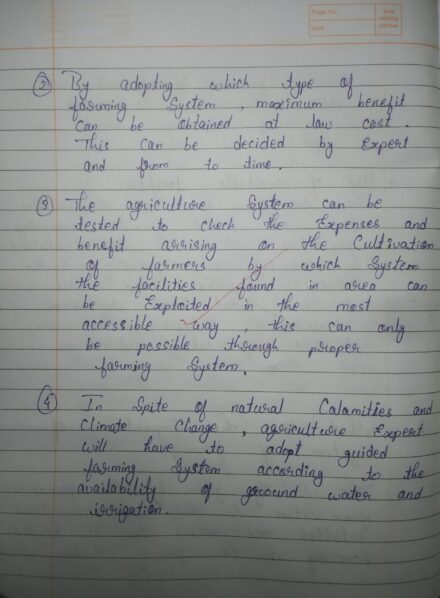 Page No.
Date
② By adopting which type of
farming System, maximum benefit
can be obtained at low cost.
This can be decided by Expert
and from to time.
③ The agriculture System can be
tested to check the Expenses and
benefit arrising on the Cultivation
of farmers by which System
the facilities found in area can
be Exploited in the most
accessible way, this can only
be possible through proper
farming System.
④ In Spite of natural Calamities and
Climate Change, agriculture Expert
will have to adopt guided
farming System according to the
availability of ground water and
irrigation.